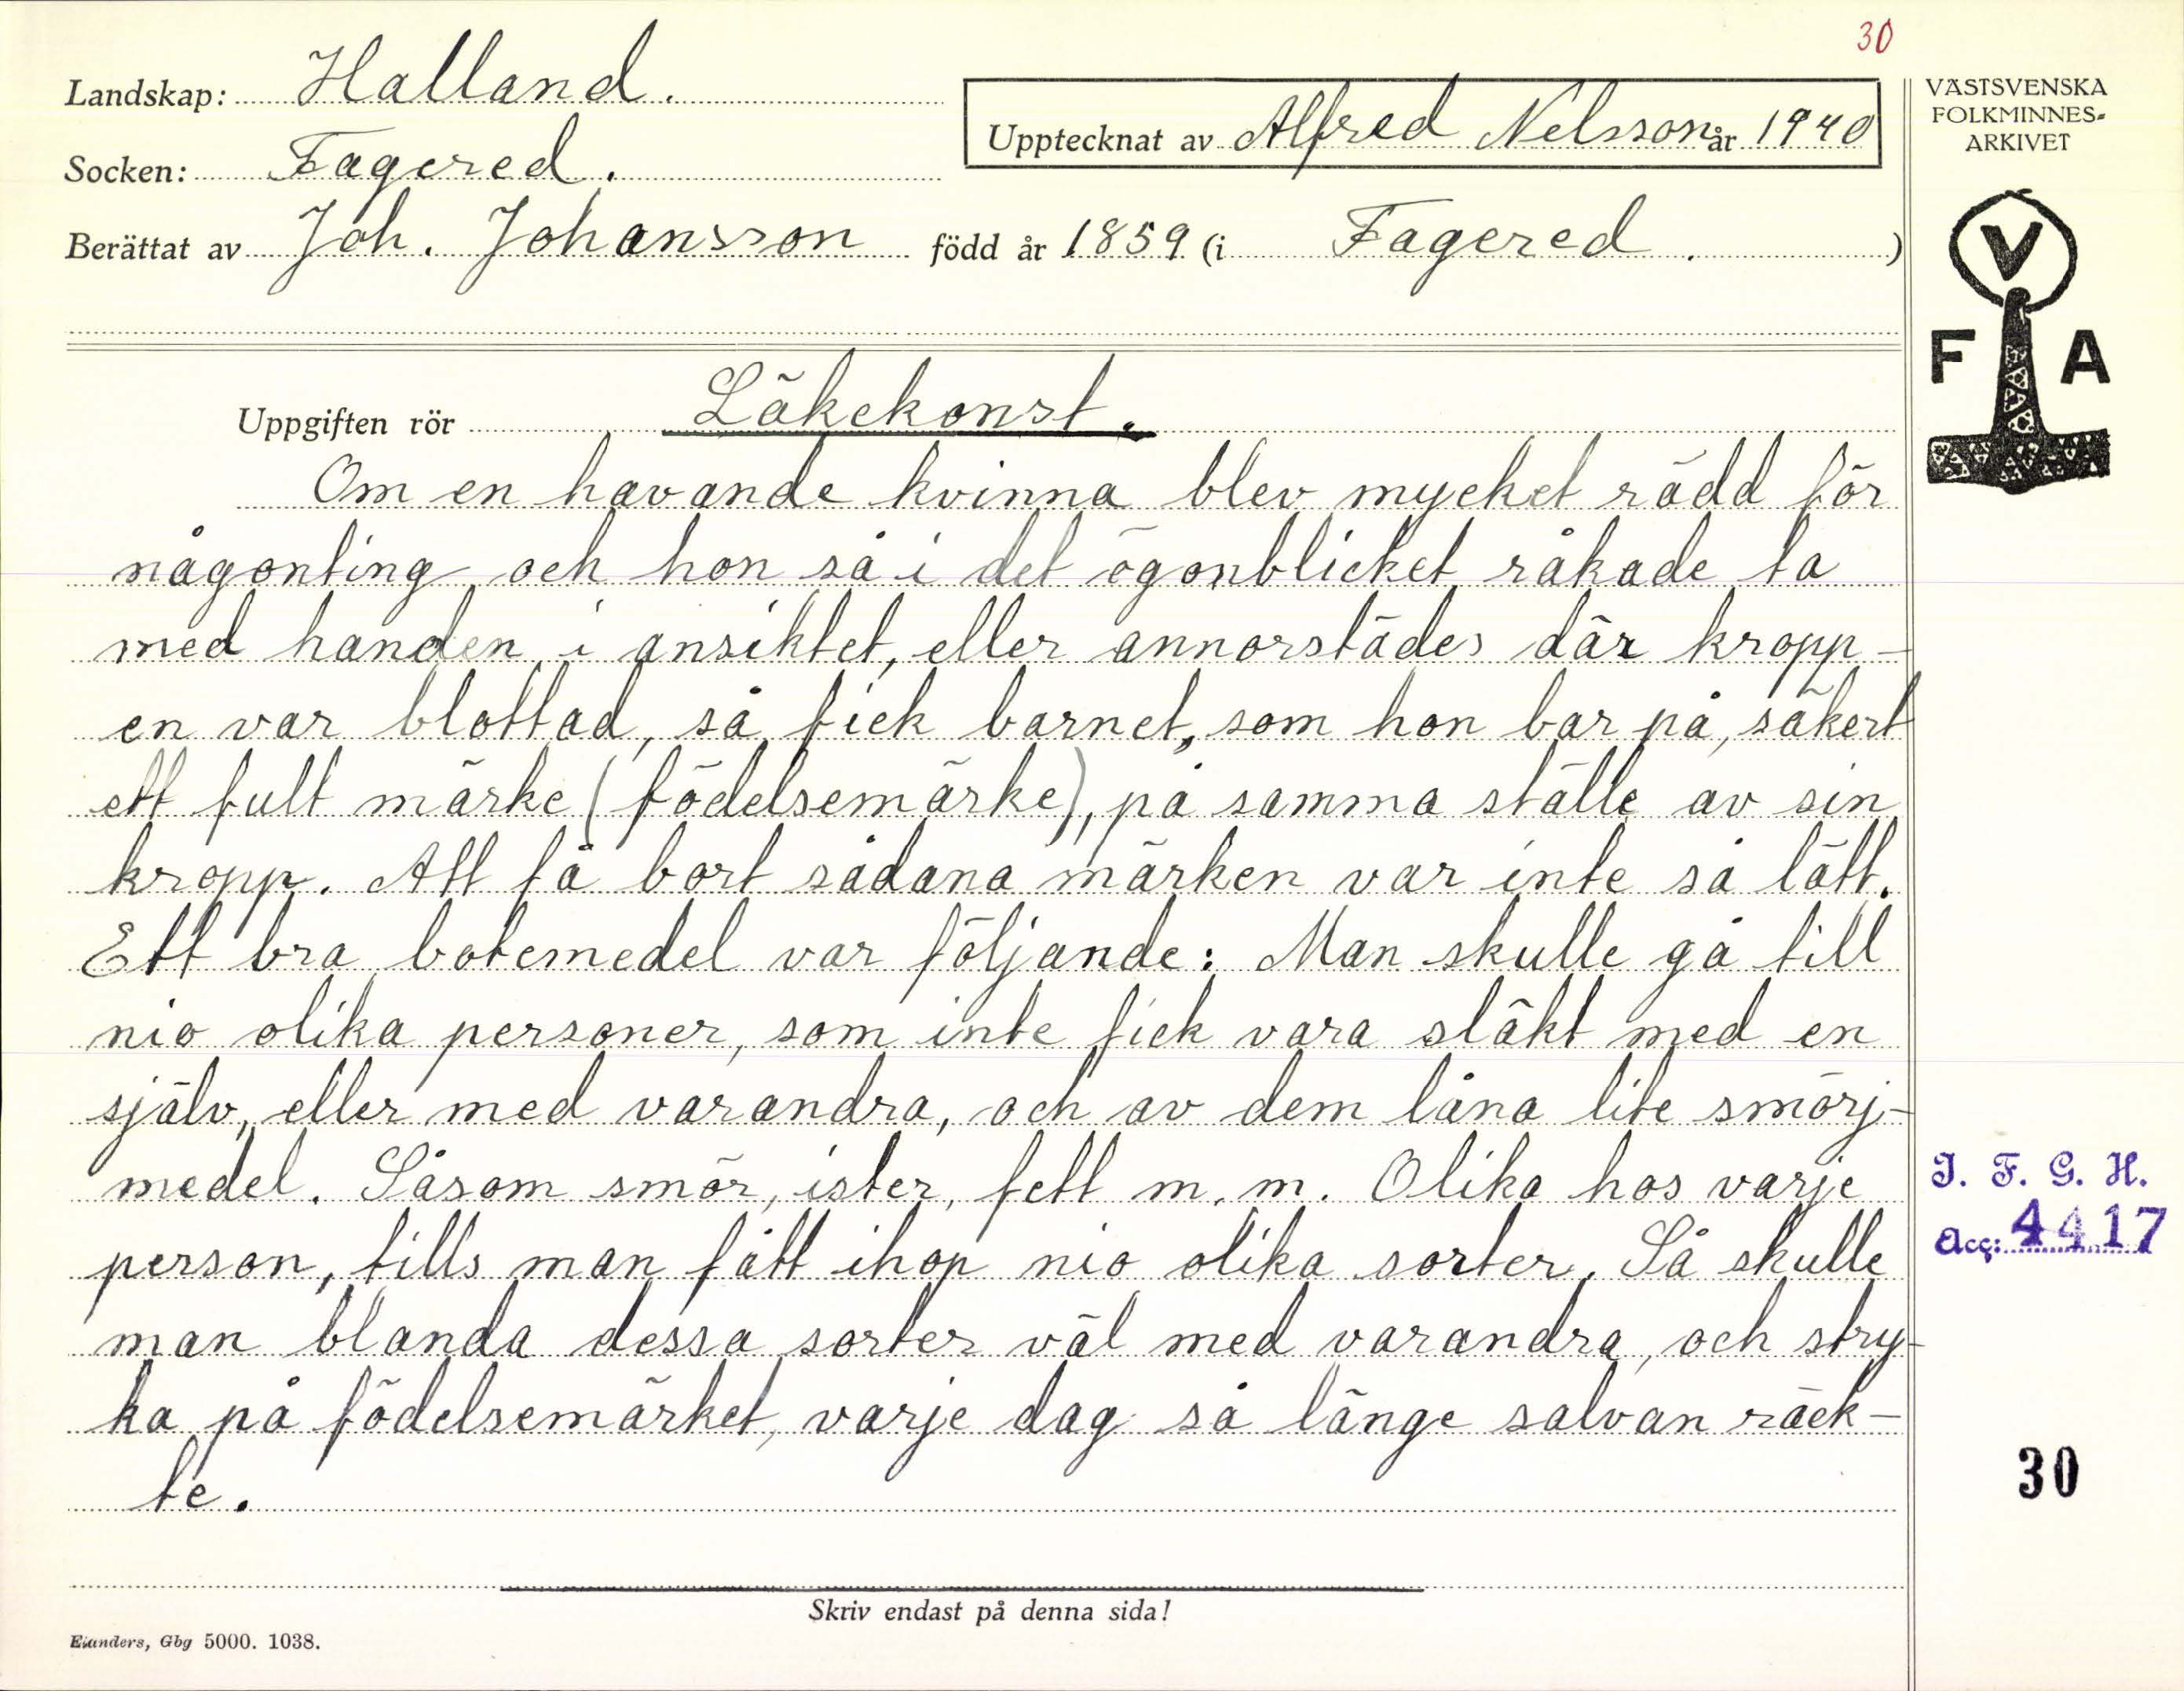 30
Landskap: Halland.
Upptecknat av Alfred Nelsson år 1940
VÄSTSVENSKA
FOLKMINNES-
ARKIVET
Socken: Fagered.
Berättat av Joh. Johansson född år 1859 (i Fagered. )
V
F A
Uppgiften rör Läkekonst.
Om en havande kvinna blev mycket rädd för
någonting och hon så i det ögonblicket råkade ta
med handen i ansiktet, eller annorstädes där kropp-
en var blottad, så fick barnet, som hon bar på, säkert
ett fult märke (födelsemärke), på samma ställe av sin
kropp. Att få bort sådana märken var inte så lätt.
Ett bra botemedel var följande: Man skulle gå till
nio olika personer, som inte fick vara släkt med en
själv, eller med varandra, och av dem låna lite smörj-
medel. Såsom smör, ister, fett m. m. Olika hos varje
person, tills man fått ihop nio olika sorter. Så skulle
man blanda dessa sorter väl med varandra, och stry-
ka på födelsemärket, varje dag så länge salvan räck-
te.
I. F. G. H.
Acc: 4417
30
Skriv endast på denna sida!
Elanders, Gbg 5000. 1038.